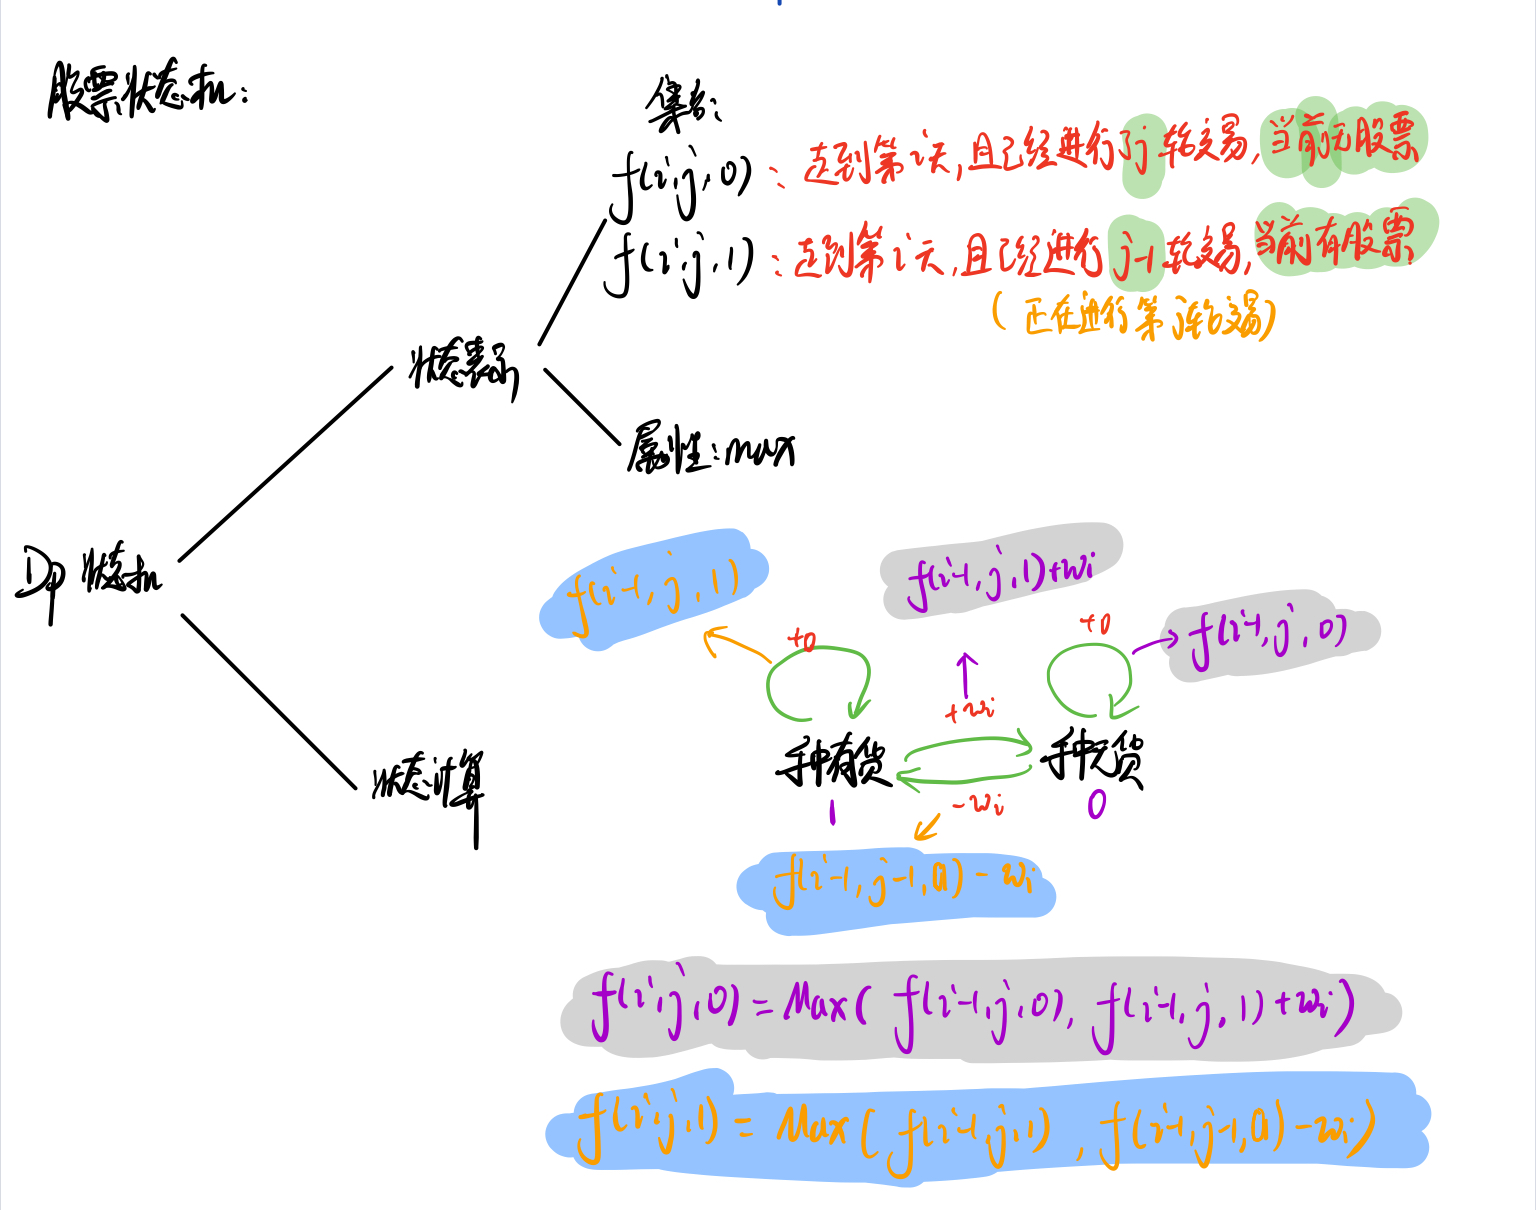 股票状态机:
集合:
f(i,j,0): 走到第i天,且已经进行了j轮交易,当前无股票
f(i,j,1): 走到第i天,且已经进行j-1轮交易,当前有股票
(正在进行第j轮交易)
状态表示
属性:max
Dp 状态机
f(i-1,j,1)
f(i-1,j,1)+wi
f(i-1,j,0)
+0
+0
+wi
手中有货
手中无货
1
0
-wi
状态计算
f(i-1,j-1,0)-wi
f(i,j,0)=Max( f(i-1,j,0), f(i-1,j,1)+wi)
f(i,j,1)=Max( f(i-1,j,1), f(i-1,j-1,0)-wi)